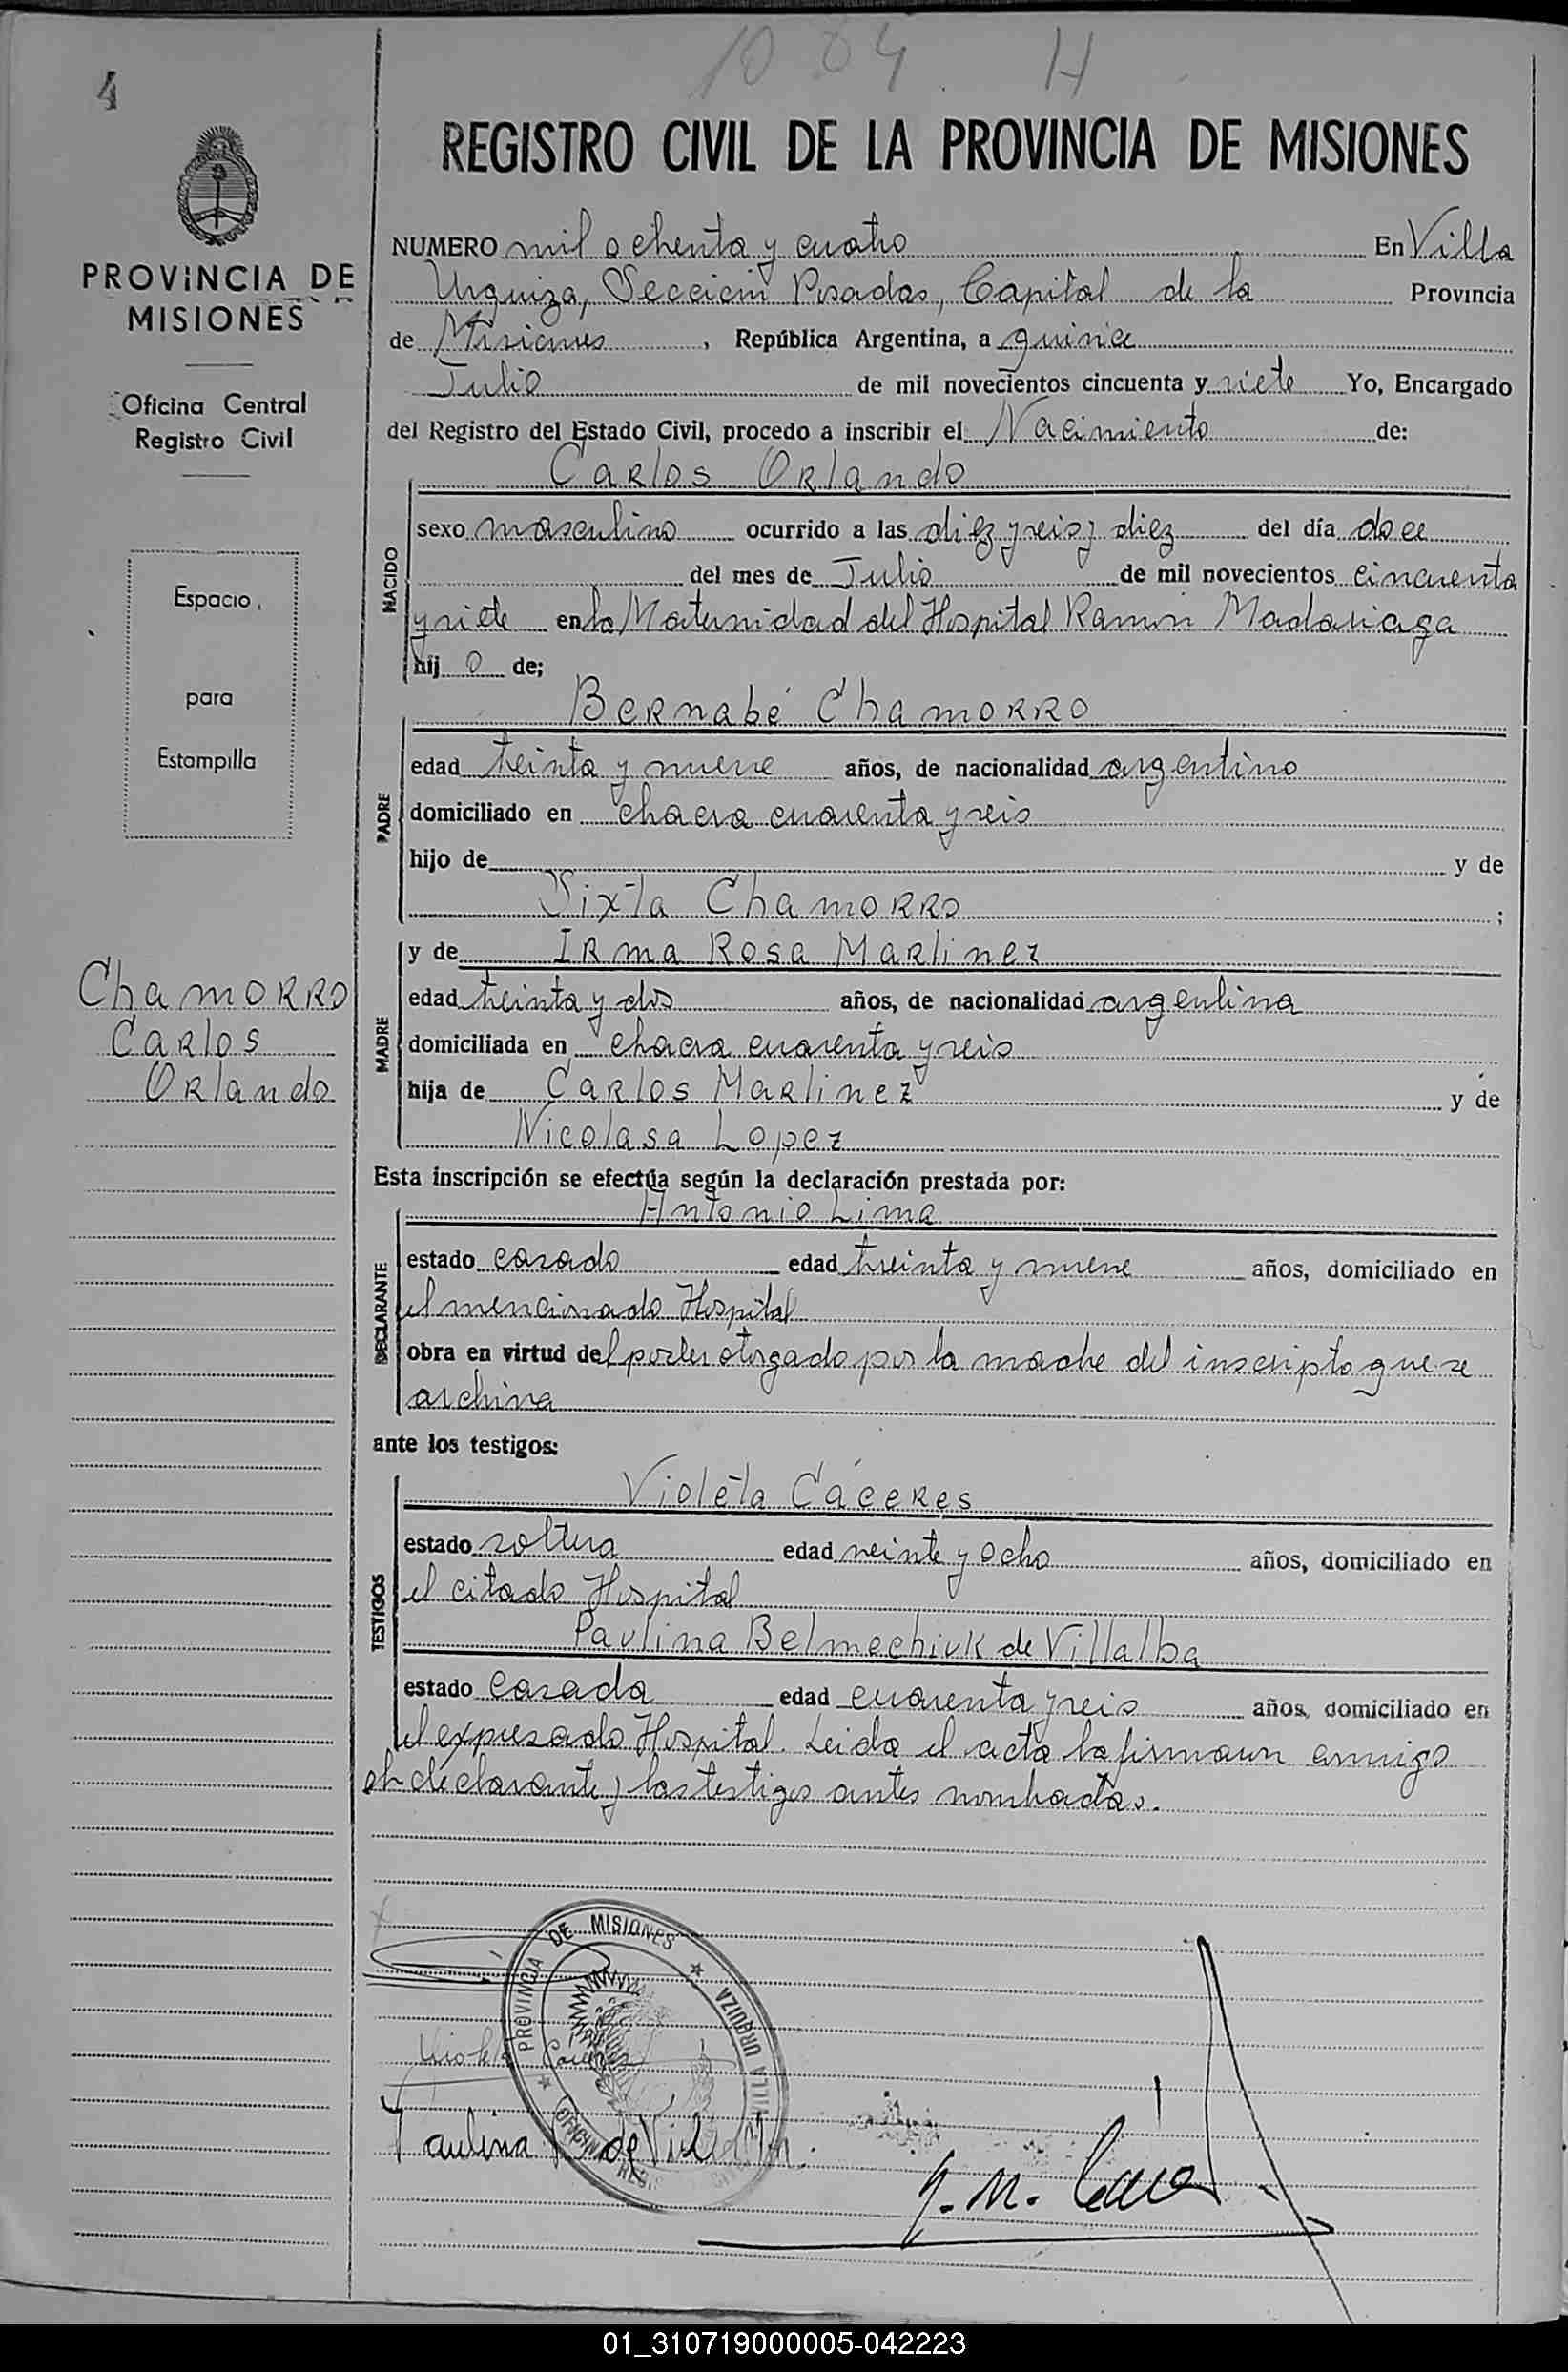 1084 H
4
REGISTRO CIVIL DE LA PROVINCIA DE MISIONES
PROVINCIA DE
MISIONES
Oficina Central
Registro Civil
Espacio
para
Estampilla
Chamorro
Carlos
Orlando
NUMERO mil ochenta y cuatro En Villa
Urquiza, Sección Posadas, Capital de la Provincia
de Misiones, República Argentina, a quince
Julio de mil novecientos cincuenta y siete Yo, Encargado
del Registro del Estado Civil, procedo a inscribir el Nacimiento de:
Carlos Orlando
NACIDO
sexo masculino ocurrido a las diez y seis y diez del día doce
del mes de Julio de mil novecientos cincuenta
y siete en la Maternidad del Hospital Ramón Madariaga
hij o de;
Bernabé Chamorro
PADRE
edad treinta y nueve años, de nacionalidad argentino
domiciliado en chacra cuarenta y seis
hijo de y de
Sixta Chamorro ;
MADRE
y de Irma Rosa Martinez
edad treinta y dos años, de nacionalidad argentina
domiciliada en chacra cuarenta y seis
hija de Carlos Martinez y de
Nicolasa Lopez
Esta inscripción se efectúa según la declaración prestada por:
Antonio Lima
DECLARANTE
estado casado edad treinta y nueve años, domiciliado en
el mencionado Hospital
obra en virtud del poder otorgado por la madre del inscripto que se
archiva
ante los testigos:
Violeta Cáceres
TESTIGOS
estado soltera edad veinte y ocho años, domiciliado en
el citado Hospital
Paulina Belmechiuk de Villalba
estado casada edad cuarenta y seis años, domiciliado en
el expresado Hospital. Leida el acta la firmaron conmigo
el declarante y las testigos antes nombradas.
PROVINCIA DE MISIONES
VILLA URQUIZA
Violeta Caceres
Paulina de Villalba
01_310719000005-042223